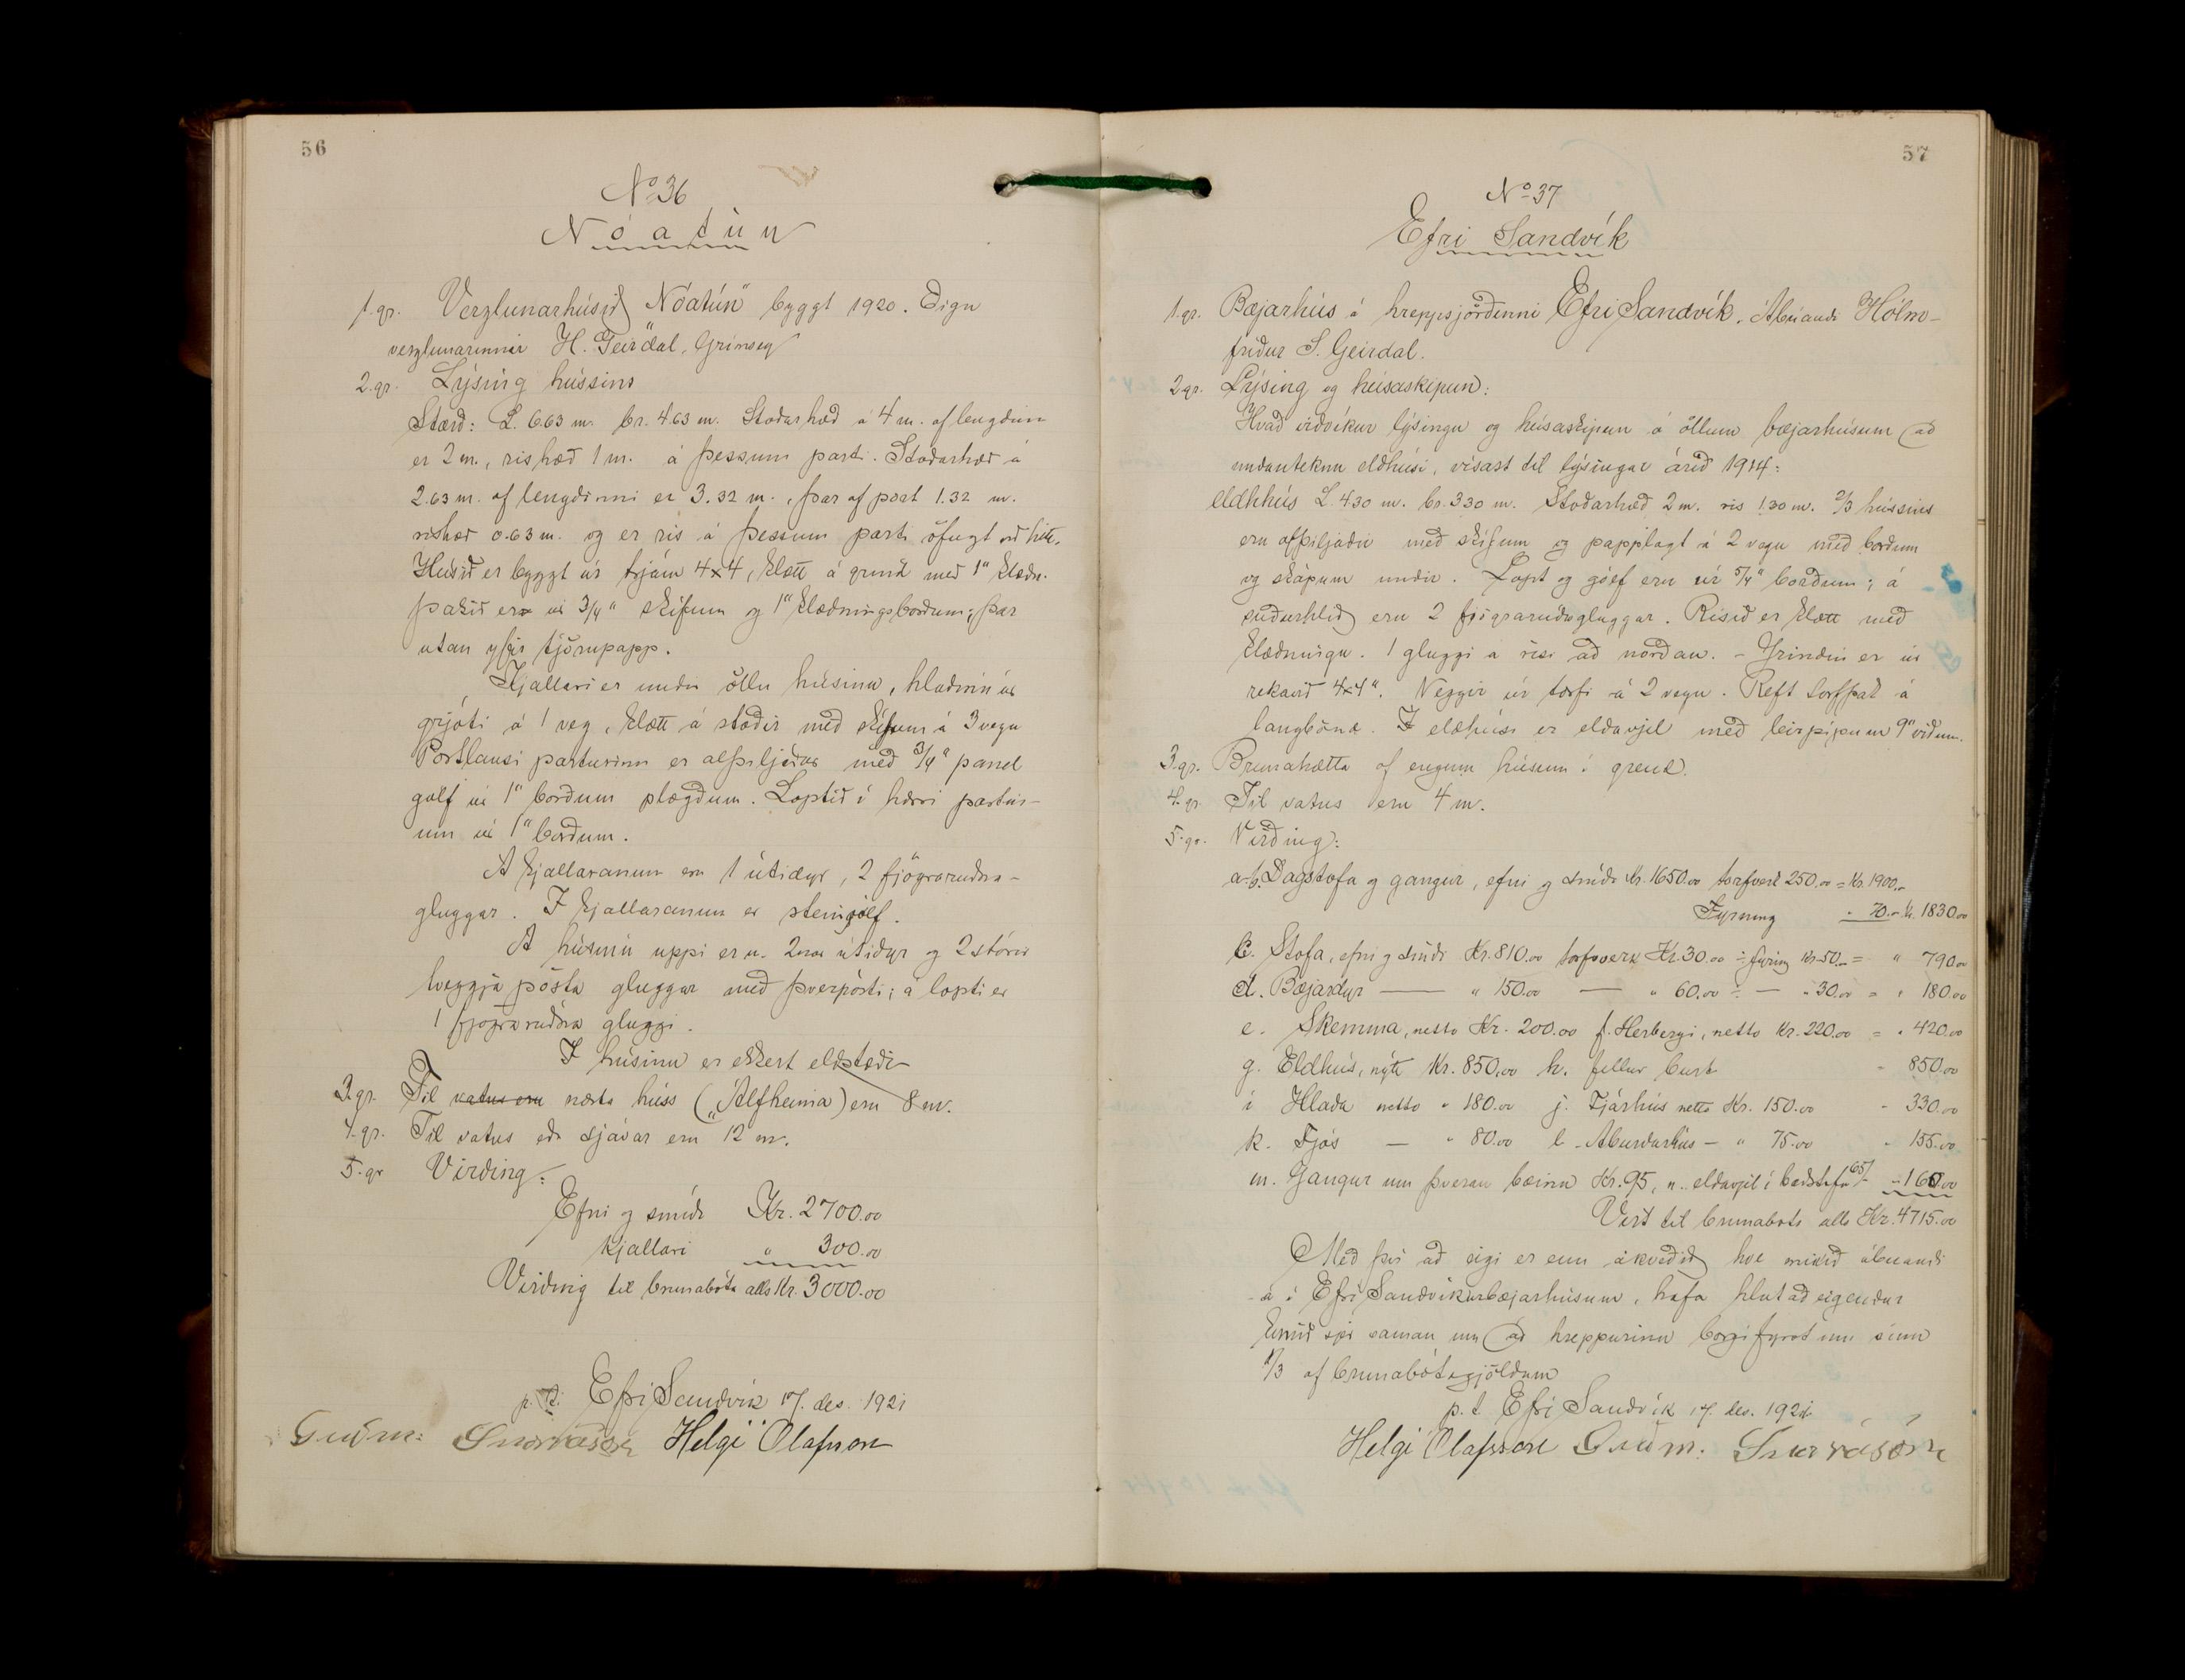 56
No 36
Nóatún
1. gr. Verzlunarhúsið „Nóatún" byggt 1920. Eign
verzlunarinnar H. Geirdal, Grímsey
2. gr. Lýsing hússins
Stærð: L. 6.63 m. br. 4.63 m. Stoðarhæð á 4 m. af lengdinni
er 2 m., rishæð 1 m. á þessum parti. Stoðarhæð á
2.63 m. af lengdinni er 3.32 m., þar af port 1.32 m.
rishæð 0.63 m. og er ris á þessum parti öfugt við hitt.
Húsið er byggt úr trjám 4x4, klætt á grind með 1" klæðn.
þakið er úr 3/4" skífum og 1" klæðningsborðum; þar
utan yfir tjörupapp.
Kjallari er undir öllu húsinu, hlaðinn úr
grjóti á 1 veg, klætt á stoðir með skífum á 3 vegu
Portlausi parturinn er alþiljaður með 3/4" panel
gólf úr 1" borðum plægðum. Loptið í hærri partin-
um úr 1" borðum.
Á kjallaranum eru 1 útidyr, 2 fjögrarúðu-
gluggar. Í kjallaranum er steingólf.
Á húsinu uppi eru 2 útidyr og 2 stórir
tveggja pósta gluggar með þverpósti; á lopti er
1 fjögrarúðu gluggi.
Í húsinu er ekkert eldstæði
3. gr. Til vatns eru næsta húss („Álfheima) eru 8 m.
4. gr. Til vatns eða sjávar eru 12 m.
5. gr Virðing:
Efni og smíði Kr. 2700.00
kjallari " 300.00
Virðing til brunabóta alls Kr. 3000.00
p.t. Efri Sandvík 17. des. 1921
Guðm: Snorrason Helgi Ólafsson
57
No 37
Efri Sandvík
1. gr. Bæjarhús á hreppsjörðinni Efri Sandvík. Ábúandi Hólm-
fríður S. Geirdal.
2. gr. Lýsing og húsaskipun:
Hvað viðvíkur lýsingu og húsaskipun á öllum bæjarhúsum að
undanteknu eldhúsi, vísast til lýsingar árið 1914:
eldhhús L. 430 m. br. 330 m. Stoðarhæð 2 m. ris 1.30 m. 2/3 hússins
eru afþiljaðir með skífum og papplagt á 2 vegu með borðum
og skápum undir. Lopt og gólf eru úr 5/4" borðum; á
suðurhlið eru 2 fjögrarúðugluggar. Risið er klætt með
klæðningu. 1 gluggi á risi að norðan. - Grindin er úr
rekavið 4x4". Veggir úr torfi á 2 vegu. Reft torfþak á
langbönd. Í eldhúsi er eldavjel með leirpípum 9" víðum.
3. gr. Brunahætta af engum húsum í grend.
4. gr. Til vatns eru 4 m.
5. gr. Virðing:
a-b. Dagstofa og gangur, efni og smíði Kr. 1650.00 torfverk 250.00 = Kr. 1900.-
Fyrning " 70.- Kr. 1830.00
c. Stofa, efni og smíði Kr. 810.00 torfverk Kr. 30.00 ÷ fyrning kr. 50.- = " 790.00
d. Bæjardyr — " 150.00 — " 60.00 ÷ — " 30.00 = " 180.00
e. Skemma, netto Kr. 200.00 f. Herbergi, netto Kr. 220.00 = " 420.00
g. Eldhús, nýtt Kr. 850.00 h. fellur burt " 850.00
i Hlaða netto " 180.00 j. Fjárhús netto Kr. 150.00 " 330.00
k. Fjós — " 80.00 l. Áburðarhús — " 75.00 " 155.00
m. Gangur um þveran bæinn Kr. 95, n. eldavjel í baðstofu 65/- " 160.00
Vert til brunabóta alls Kr. 4715.00
Með því að eigi er enn ákveðið hve mikið ábúandi
á í Efri Sandvíkurbæjarhúsum, hafa hlutaðeigendur
komið sjer saman um að hreppurinn borgi fyrst um sinn
1/3 af brunabótagjöldum
p.t. Efri Sandvík 17. des. 1921
Helgi Ólafsson Guðm: Snorrason